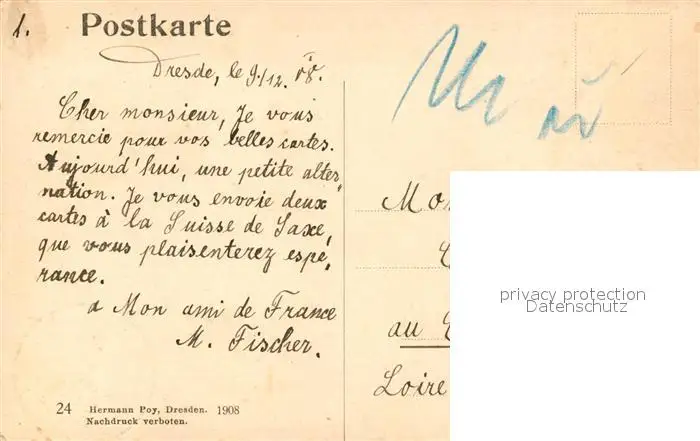 1.
Postkarte
Dresde, le 9/12. 08.
Cher monsieur, Je vous
remercie pour vos belles cartes.
Aujourd'hui, une petite alter-
nation. Je vous envoie deux
cartes à la Suisse de Saxe,
que vous plaisenterez espé-
rance.
a Mon ami de France
M. Fischer.
24 Hermann Poy, Dresden. 1908
Nachdruck verboten.
au
Loire
privacy protection
Datenschutz